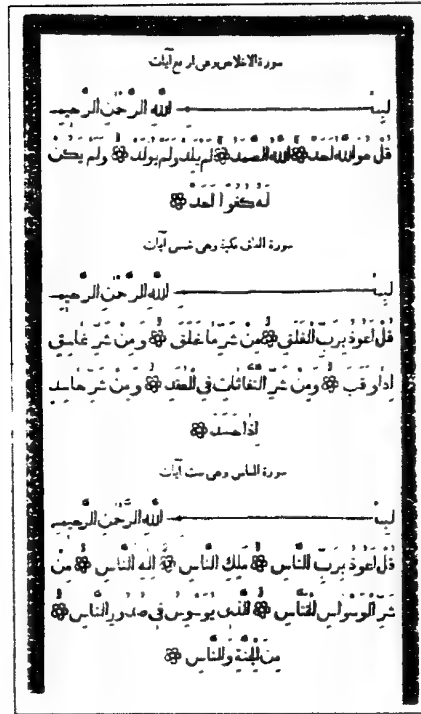 سورة الاخلاص وهى اربع آيات
بِسْمِ اللَّهِ الرَّحْمَٰنِ الرَّحِيمِ
قُلْ هُوَ اللَّهُ أَحَدٌ ۞ اللَّهُ الصَّمَدُ ۞ لَمْ يَلِدْ وَلَمْ يُولَدْ ۞ وَلَمْ يَكُنْ
لَهُ كُفُوًا أَحَدٌ ۞
سورة الفلق مكية وهى خمس آيات
بِسْمِ اللَّهِ الرَّحْمَٰنِ الرَّحِيمِ
قُلْ أَعُوذُ بِرَبِّ الْفَلَقِ ۞ مِنْ شَرِّ مَا خَلَقَ ۞ وَمِنْ شَرِّ غَاسِقٍ
إِذَا وَقَبَ ۞ وَمِنْ شَرِّ النَّفَّاثَاتِ فِي الْعُقَدِ ۞ وَمِنْ شَرِّ حَاسِدٍ
إِذَا حَسَدَ ۞
سورة الناس وهى ست آيات
بِسْمِ اللَّهِ الرَّحْمَٰنِ الرَّحِيمِ
قُلْ أَعُوذُ بِرَبِّ النَّاسِ ۞ مَلِكِ النَّاسِ ۞ إِلَٰهِ النَّاسِ ۞ مِنْ
شَرِّ الْوَسْوَاسِ الْخَنَّاسِ ۞ الَّذِي يُوَسْوِسُ فِي صُدُورِ النَّاسِ ۞
مِنَ الْجِنَّةِ وَالنَّاسِ ۞